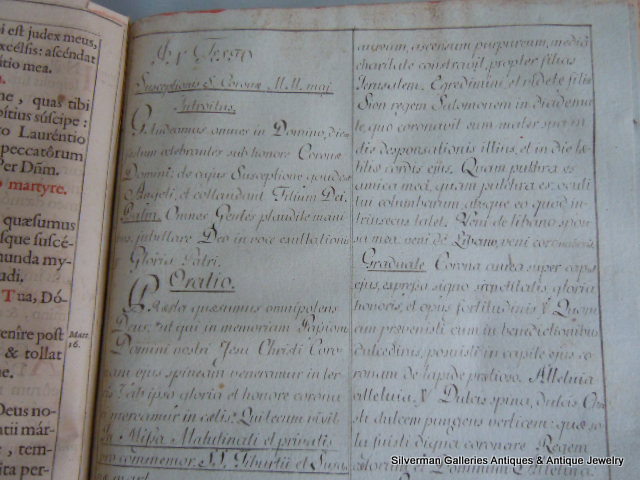 ei est judex meus,
excélsis: ascéndat
ratio mea.
ne, quas tibi
pitius súscipe:
to Lauréntio
peccatôrum
Per Dñm.
martyre.
quæsumus
sque suscé-
munda my-
udi.
Tua, Dó-
venîre post
& tollat
ne.
Deus no-
ntii már-
, tem-
ita per-
Matt.
16.
In Festo
Susceptionis S. Coronæ MM. maj.
Introitus.
Gaudeamus omnes in Domino, diem
festum celebrantes sub honore Coronæ
Domini: de cujus Susceptione gaudent
Angeli, et collaudant Filium Dei.
Psalm. Omnes Gentes plaudite mani
bus, jubilate Deo in voce exultationis
Gloria Patri.
Oratio.
Præsta quæsumus omnipotens
Deus: ut qui in memoriam Passionis
Domini nostri Jesu Christi Coro
nam ejus spineam veneramur in ter
ris: ab ipso gloria et honore corona
ri mereamur in cælis: Qui tecum vivit
In Missa Matutinali et privatis
pro commemor. SS. Tiburtii et Susan
mart.
auream, ascensum purpureum, mediâ
charitate constravit, propter filias
Jerusalem. Egredimini et videte filiæ
Sion regem Salomonem in diademate
quo coronavit eum mater sua in
die desponsationis illius, et in die læ
titiæ cordis ejus. Quam pulchra es
amica mea, quam pulchra es: oculi
tui columbarum, absque eo quod in
trinsecus latet. Veni de libano spon
sa mea, veni de Libano, veni coronaberis.
Graduale. Corona aurea super caput
ejus, expressa signo sanctitatis, gloria
honoris, et opus fortitudinis. V. Quoniam
prævenisti eum in benedictionibus
dulcedinis, posuisti in capite ejus co
ronam de lapide pretioso. Alleluia
alleluia, V. Dulcis spina, dulcis
pungens verticem: quæ so
la fuisti digna coronare Regem
cælorum et Dominum. Alleluia.
Silverman Galleries Antiques & Antique Jewelry